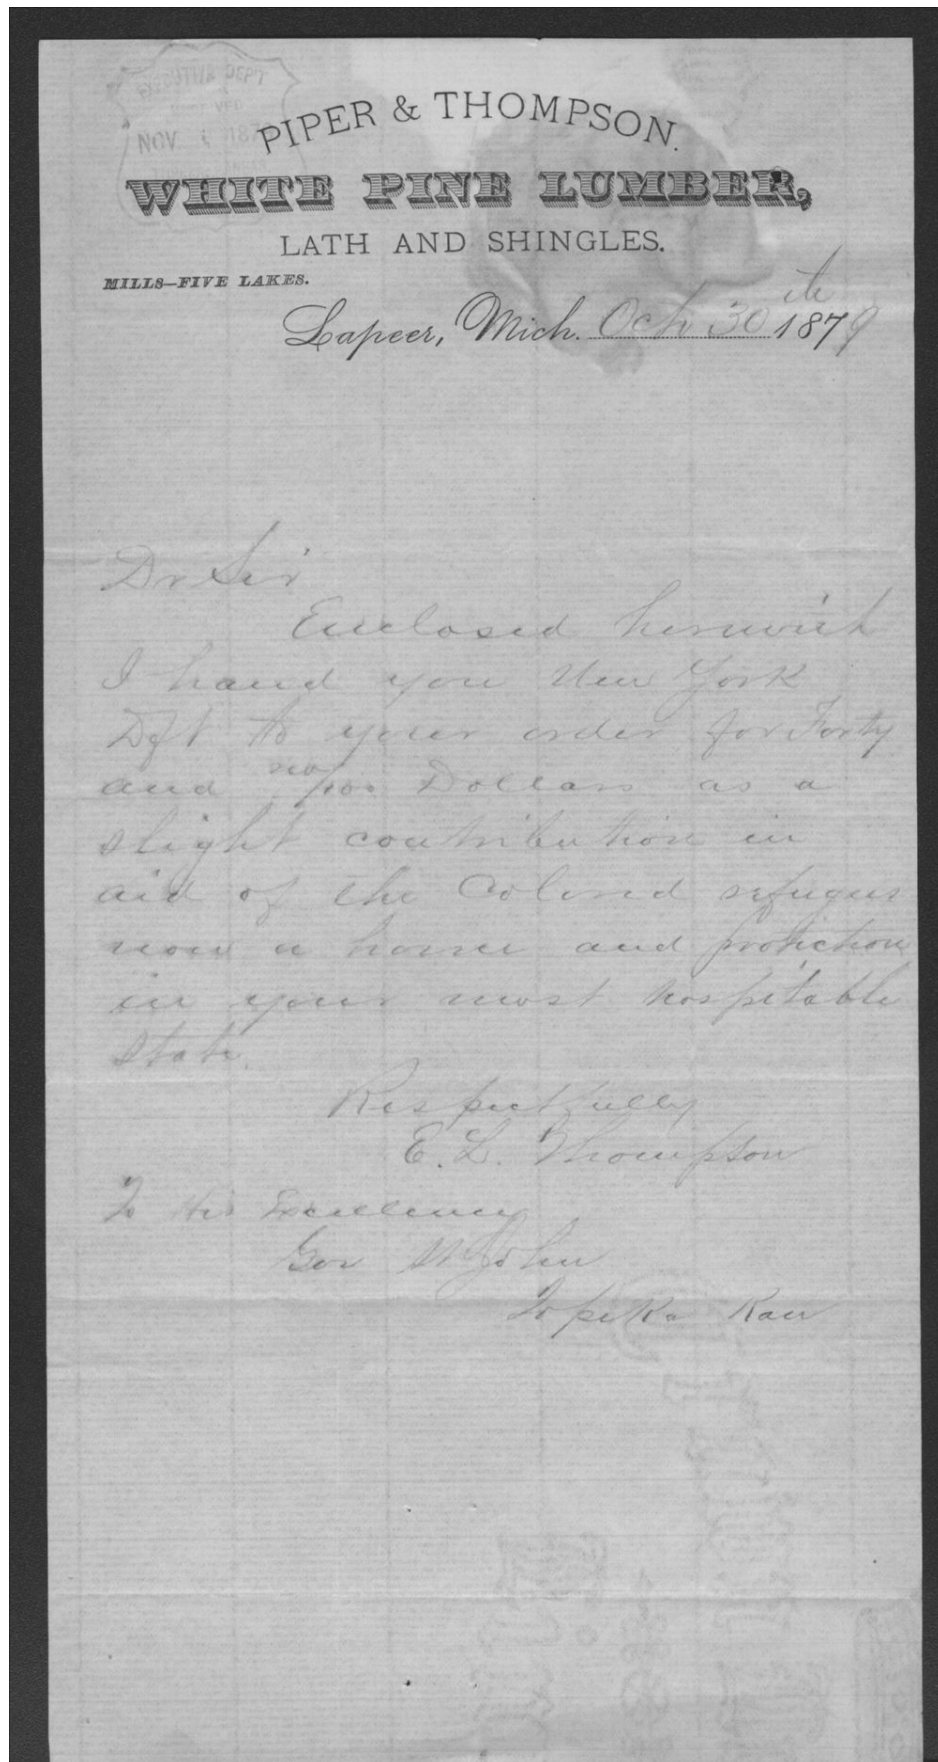 PIPER & THOMPSON.
WHITE PINE LUMBER,
LATH AND SHINGLES.
MILLS—FIVE LAKES.
Lapeer, Mich. Oct 30 th 1879
Dr Sir
Enclosed herewith
I hand you New York
Dft to your order for Forty
and no/100 Dollars as a
slight contribution in
aid of the Colored refugees
now a home and protection
in your most hospitable
state.
Respectfully
E. L. Thompson
To His Excellency
Gov St John
Topeka Kan